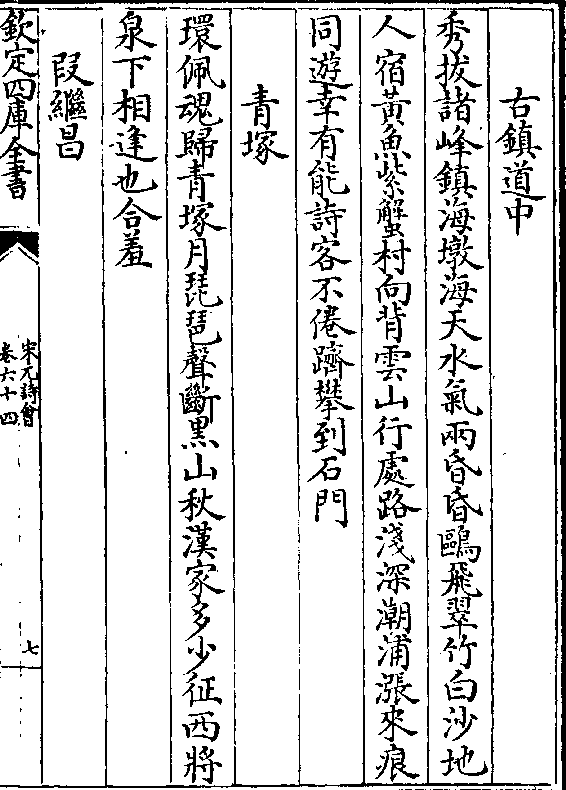 古鎮道中
秀拔諸峰鎮海墩海天水氣兩昏昏鷗飛翠竹白沙地
人宿黃魚紫蟹村向背雲山行處路淺深潮浦漲來痕
同遊幸有能詩客不倦躋攀到石門
青塚
環佩魂歸青塚月琵琶聲斷黑山秋漢家多少征西將
泉下相逢也合羞
段繼昌
欽定四庫全書
宋元詩會
卷六十四
七